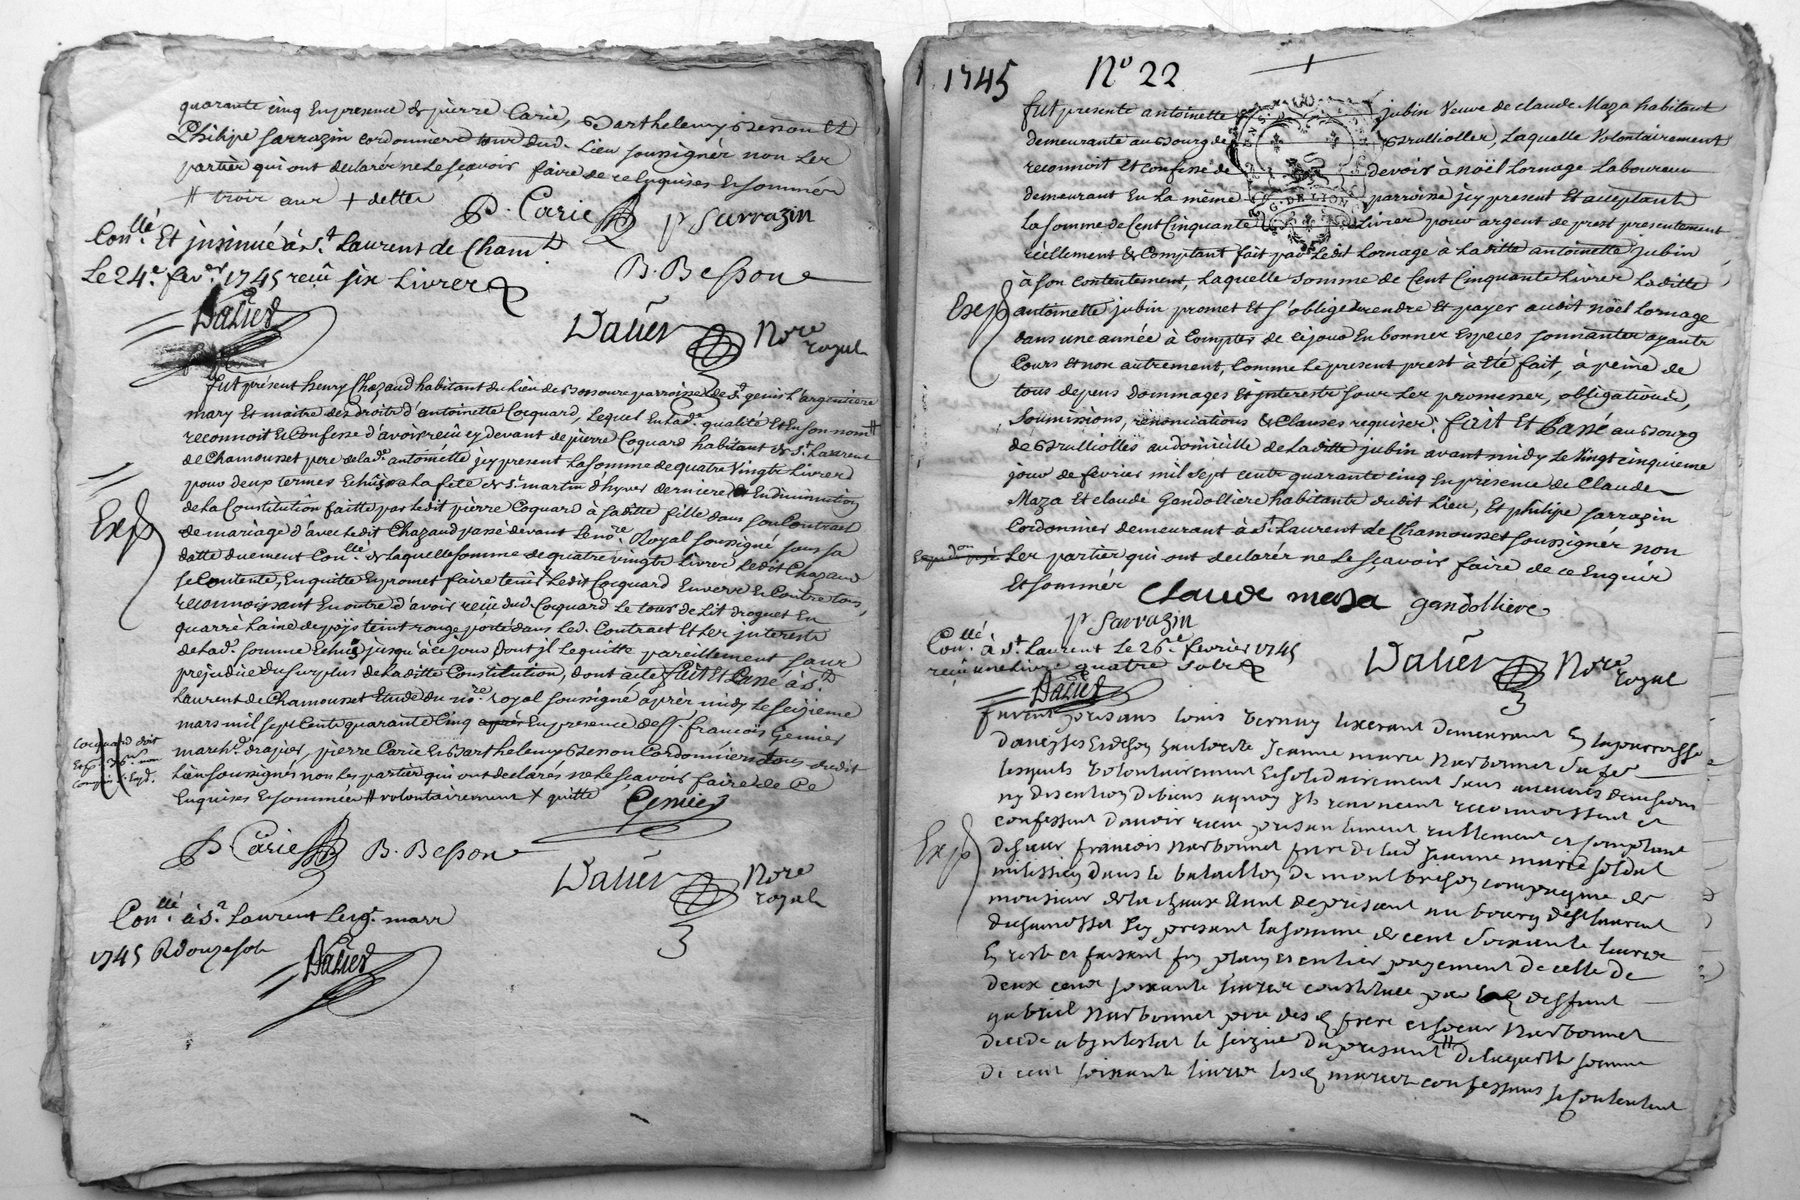 quarante cinq En presence de pierre Carie, Barthelemy Besson Et
Philipe Sarrazin cordonniers tous dud. Lieu soussignés non Les
parties qui ont declarés ne Le sçavoir faire de ce Enquises Ensommés
# trois aux + dettes
P. Carie p Sarrazin
Con.llé Et jnsinué à S.t Laurent de Cham.t
Le 24.e fev.er 1745 reçû six Livres
B. Besson
Dalier
Dalier Nore royal
fut présent henry Chazaud habitant du Lieu de Bessoure parroisse de S.t genis L'argentiere
mary Et maitre des droits d'antoinette Cocquard, Lequel En Lad.e qualité Et En son nom #
reconnoit Et Confesse d'avoir reçû cy devant de pierre Coquard habitant de S.t Laurent
de Chamousset pere de lad.e antoinette jcy present La somme de quatre Vingts Livres
pour deux termes Echûs a La fete de S.t martin d'hyver derniere Et En diminution
de La Constitution faitte par Ledit pierre Coquard à Saditte fille dans son Contract
de mariage d'avec Ledit Chazaud passé devant Le no.re Royal soussigné sous sa
datte duement Con.llé de Laquelle somme de quatre vingts Livres Ledit Chazaud
se Contente, En quitte Et promet faire tenir Ledit Cocquard Envers Et Contre tous,
reconnoissant En outre d'avoir reçû dud. Cocquard Le tour de Lit droguet En
quarré Laine de païs teint rouge porté dans Led. Contract Et Les jnterests
de Lad.e somme Echus jusqu'à ce jour dont jl Le quitte pareillement sans
prejudice du surplus de La ditte Constitution, dont acte fait Et passé à S.t
Laurent de Chamousset Etude du no.re Royal soussigné après midy Le seizieme
mars mil sept Cents quarante Cinq après En presence de s.r francois Genier
march.d drapier, pierre Carie Et Barthelemy Besson Cordonniers tous dudit
Lieu soussignés non Les parties qui ont declarés ne Le sçavoir faire de Ce
Enquises Ensommées # volontairement + quitte
Cocquard doit
Exp
Genier
P. Carie B. Besson
Dalier Nore royal
Con.llé à S.t Laurent Le 19.e mars
1745 R douze sols
Dalier
1745 No 22
fut presente antoinette jubin Veuve de claude Maza habitant
demeurante au Bourg de Brulliolles, Laquelle Volontairement
reconnoit Et confesse de devoir à noël Lornage Laboureur
demeurant En La même parroisse jcy present Et acceptant
La somme de Cent Cinquante Livres pour argent de prest presentement
G. DE LION
réellement & Comptant fait par Ledit Lornage à Laditte antoinette jubin
à son contentement, Laquelle somme de Cent Cinquante Livres Laditte
Exp
antoinette jubin promet Et s'oblige rendre Et payer audit noël Lornage
dans une année à Compter de Cejour En bonnes Especes sonnantes ayants
Cours Et non autrement, Comme Le present prest à Eté fait, à peine de
tous depens dommages Et jnterests sous Les promesses, obligations,
Soumissions, renonciations & Clauses requises. fait Et Passé au Bourg
de Brulliolles au domicille de La ditte jubin avant midy Le Vingt cinquieme
jour de fevrier mil Sept cents quarante cinq En présence de Claude
Maza Et claude Gandolliere habitants dudit Lieu, Et philipe Sarrazin
Cordonnier demeurant à S.t Laurent de Chamousset soussignés non
Les parties qui ont declarés ne Le sçavoir faire de ce Enquis
Et sommés
Claude masa gandolliere
p Sarrazin
Con.llé à S.t Laurent Le 26.e fevrier 1745
reçu une Livre quatre sols
Dalier
Dalier Nore royal
furent presans Louis Vernay tixerant demeurant En la parroisse
Jeanne marie Narbonnet sa fe
lesquels Volontairement Et solidairement sans aucunes divisions
ny discution de biens a quoy ils renoncent reconnoissent et
confessent d'avoir receu presentement reellement et comptant
Exp
de sieur francois Narbonnet frere de lad. Jeanne marie soldat
milissien dans le bataillon de montbrison compagnie de
monsieur de la chaux Etant de present au bourg de S.t laurent
de chamosset Icy present la somme de cent soixante livres
En reste et faisant fin plain et entier payement de celle de
deux cens soixante livres constituée par desfunt
gabriel Narbonnet pere des d. frere et soeur Narbonnet
decede abintestat le du present # de laquelle somme
de cent soixante livres les d. mariez confessans se contentent